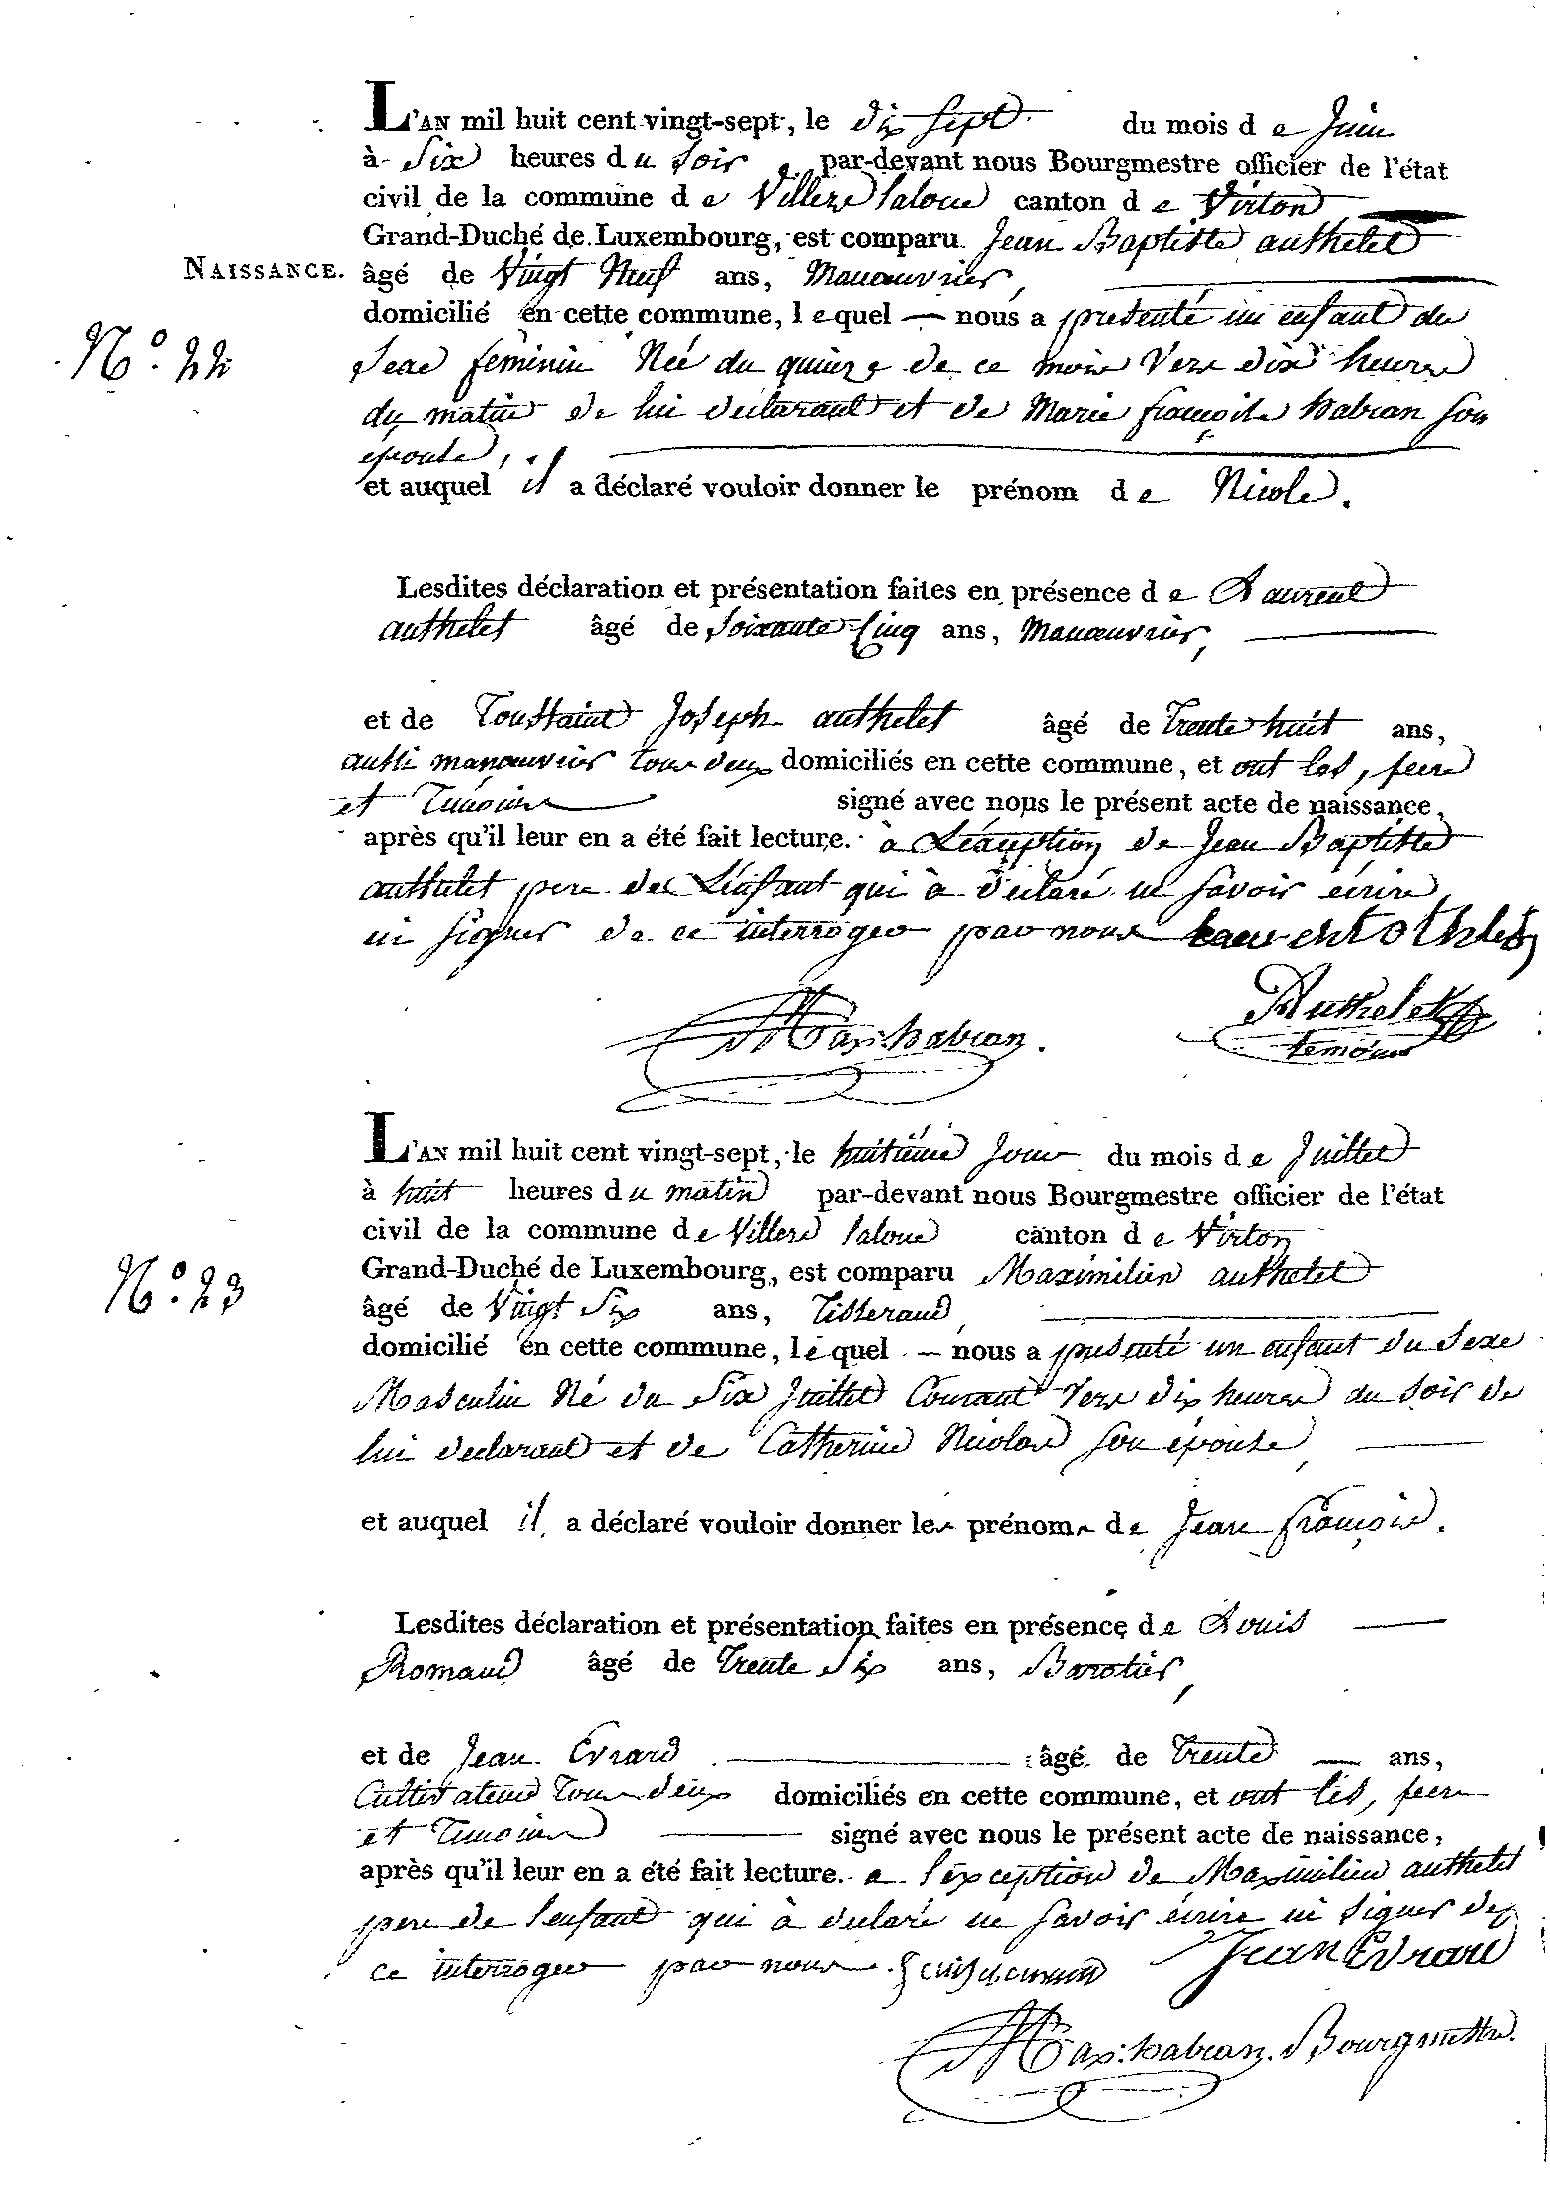 L'AN mil huit cent vingt-sept, le dix sept du mois de Juin
à Six heures du Soir, par-devant nous Bourgmestre officier de l'état
civil de la commune de Villers Laloue canton de Virton
Grand-Duché de Luxembourg, est comparu Jean Baptiste authelet
NAISSANCE. âgé de Vingt Neuf ans, Manœuvrier,
domicilié en cette commune, lequel — nous a presenté un enfant du
N.o 22
Sexe feminin Née du quinze de ce mois Vers dix heures
du matin de lui declarant et de Marie françoise habran son
epouse,
et auquel il a déclaré vouloir donner le prénom de Nicole.
Lesdites déclaration et présentation faites en présence de Laurent
authelet âgé de Soixante Cinq ans, Manœuvrier,
et de Toussaint Joseph authelet âgé de Trente huit ans,
aussi manœuvrier tous deux domiciliés en cette commune, et ont les, peres
et Temoins signé avec nous le présent acte de naissance,
après qu'il leur en a été fait lecture. à L'éxception de Jean Baptiste
authelet pere de L'enfant qui à declaré ne savoir écrire
ni signer de ce interrogeo par nous Laurent othelet
Authelet
Max: habran.
temoin
L'AN mil huit cent vingt-sept, le huitième Jour du mois de Juillet
à huit heures du matin par-devant nous Bourgmestre officier de l'état
civil de la commune de Villers Laloue canton de Virton
N.o 23
Grand-Duché de Luxembourg, est comparu Maximilien authelet
âgé de Vingt Six ans, Tisserand,
domicilié en cette commune, lequel — nous a presenté un enfant du Sexe
Masculin Né du Six Juillet Courant Vers dix heures du soir de
lui declarant et de Catherine Nicolas son épouse,
et auquel il a déclaré vouloir donner les prénoms de Jean françois.
Lesdites déclaration et présentation faites en présence de Louis
Romand âgé de Trente Six ans, Barotier,
et de Jean Evrard âgé de Trente — ans,
Cultivateur tous deux domiciliés en cette commune, et ont les, peres
et Temoins signé avec nous le présent acte de naissance,
après qu'il leur en a été fait lecture. a l'exception de Maximilien authelet
pere de l'enfant qui à declaré ne savoir écrire ni signer de
ce interrogeo par nous. Jean Evrard
Max: habran. Bourgmestre.